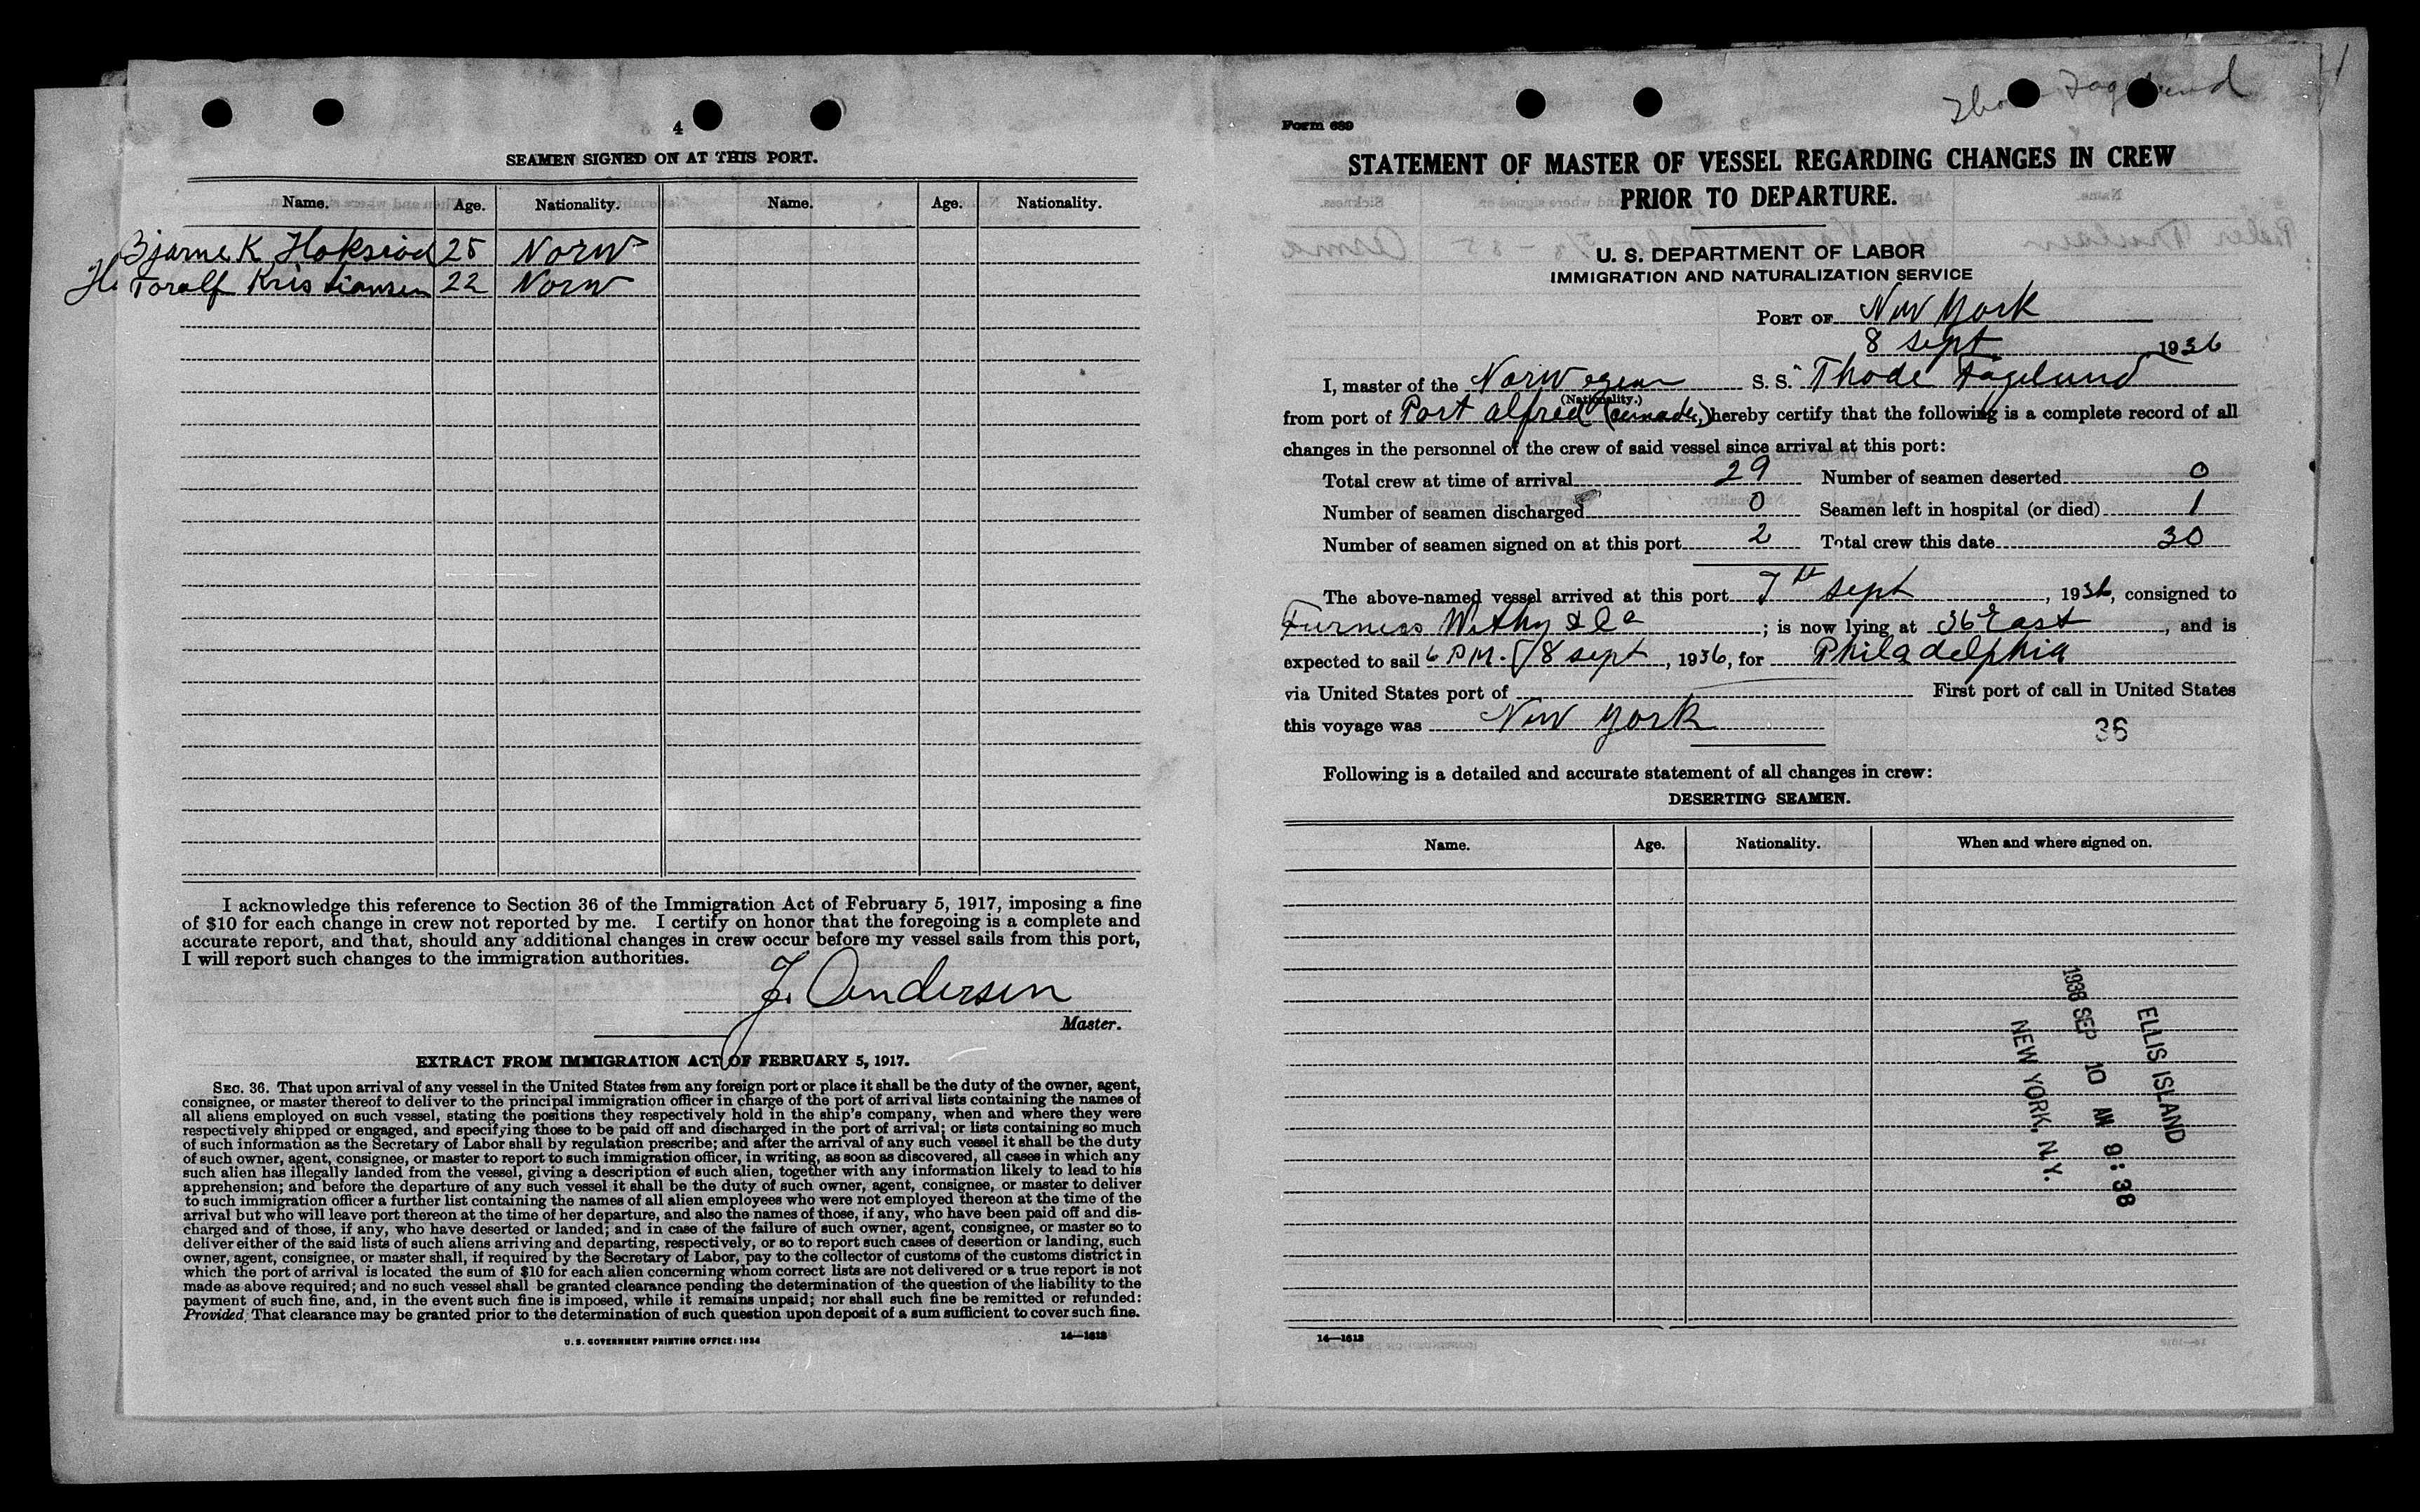 4
SEAMEN SIGNED ON AT THIS PORT.
Name. Age. Nationality. Name. Age. Nationality.
Bjarne K 25 Norw
H. Toralf Kristiansen 22 Norw
I acknowledge this reference to Section 36 of the Immigration Act of February 5, 1917, imposing a fine
of $10 for each change in crew not reported by me. I certify on honor that the foregoing is a complete and
accurate report, and that, should any additional changes in crew occur before my vessel sails from this port,
I will report such changes to the immigration authorities.
J. Andersen
Master.
EXTRACT FROM IMMIGRATION ACT OF FEBRUARY 5, 1917.
SEC. 36. That upon arrival of any vessel in the United States from any foreign port or place it shall be the duty of the owner, agent,
consignee, or master thereof to deliver to the principal immigration officer in charge of the port of arrival lists containing the names of
all aliens employed on such vessel, stating the positions they respectively hold in the ship's company, when and where they were
respectively shipped or engaged, and specifying those to be paid off and discharged in the port of arrival; or lists containing so much
of such information as the Secretary of Labor shall by regulation prescribe; and after the arrival of any such vessel it shall be the duty
of such owner, agent, consignee, or master to report to such immigration officer, in writing, as soon as discovered, all cases in which any
such alien has illegally landed from the vessel, giving a description of such alien, together with any information likely to lead to his
apprehension; and before the departure of any such vessel it shall be the duty of such owner, agent, consignee, or master to deliver
to such immigration officer a further list containing the names of all alien employees who were not employed thereon at the time of the
arrival but who will leave port thereon at the time of her departure, and also the names of those, if any, who have been paid off and dis-
charged and of those, if any, who have deserted or landed; and in case of the failure of such owner, agent, consignee, or master so to
deliver either of the said lists of such aliens arriving and departing, respectively, or so to report such cases of desertion or landing, such
owner, agent, consignee, or master shall, if required by the Secretary of Labor, pay to the collector of customs of the customs district in
which the port of arrival is located the sum of $10 for each alien concerning whom correct lists are not delivered or a true report is not
made as above required; and no such vessel shall be granted clearance pending the determination of the question of the liability to the
payment of such fine, and, in the event such fine is imposed, while it remains unpaid; nor shall such fine be remitted or refunded:
Provided, That clearance may be granted prior to the determination of such question upon deposit of a sum sufficient to cover such fine.
U. S. GOVERNMENT PRINTING OFFICE: 1934 14—1613
Form 689
STATEMENT OF MASTER OF VESSEL REGARDING CHANGES IN CREW
PRIOR TO DEPARTURE.
U. S. DEPARTMENT OF LABOR
IMMIGRATION AND NATURALIZATION SERVICE
PORT OF New York
8 Sept 1936
I, master of the Norwegian S. S. Thode Fagelund
(Nationality.)
from port of Port Alfred (Canada,) hereby certify that the following is a complete record of all
changes in the personnel of the crew of said vessel since arrival at this port:
Total crew at time of arrival 29 Number of seamen deserted 0
Number of seamen discharged 0 Seamen left in hospital (or died) 1
Number of seamen signed on at this port 2 Total crew this date 30
The above-named vessel arrived at this port 7th Sept, 1936, consigned to
Furness Withy & Co; is now lying at 36 East, and is
expected to sail 6 P.M. 8 Sept, 1936, for Philadelphia
via United States port of First port of call in United States
this voyage was New York
36
Following is a detailed and accurate statement of all changes in crew:
DESERTING SEAMEN.
Name. Age. Nationality. When and where signed on.
ELLIS ISLAND
1936 SEP 10 AM 9:38
NEW YORK, N.Y.
14—1613